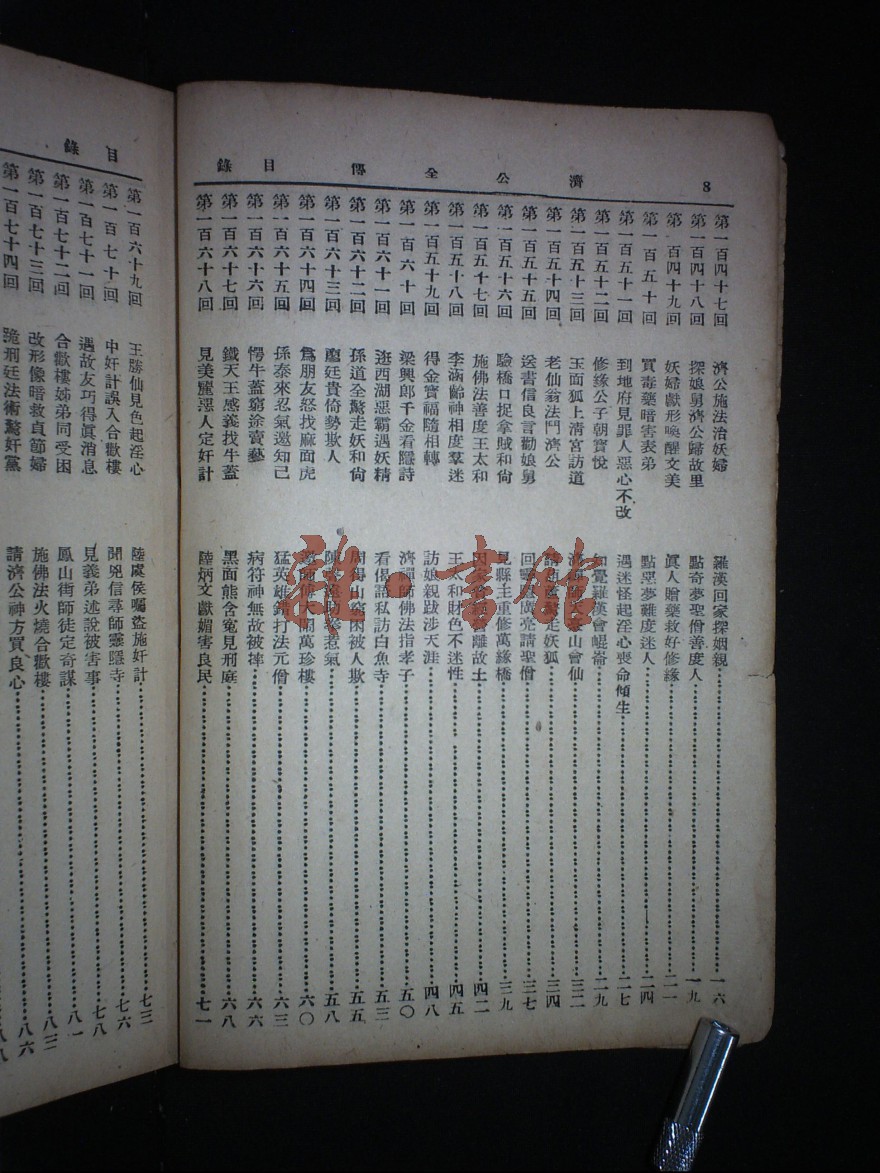 8 濟公全傳 目錄
第一百四十七回 濟公施法治妖婦 羅漢回家探姻親 一六
第一百四十八回 探娘舅濟公歸故里 點奇夢聖僧善度人 一九
第一百四十九回 妖婦獻形喚醒文美 眞人贈藥救好修緣 二一
第一百五十回 買毒藥暗害表弟 點噩夢難度迷人 二四
第一百五十一回 到地府見罪人惡心不改 遇迷怪起淫心喪命傾生 二七
第一百五十二回 修緣公子朝寶悅 知覺羅漢會崐崙 二九
第一百五十三回 玉面狐上清宮訪道 濟 山會仙 三二
第一百五十四回 老仙翁法鬥濟公 請 走妖狐 三四
第一百五十五回 送書信良言勸娘舅 回靈隱廣亮請聖僧 三七
第一百五十六回 驗橋口捉拿賊和尙 見縣主重修萬緣橋 三九
第一百五十七回 施佛法善度王太和 因 離故土 四二
第一百五十八回 李涵齡神相度羣迷 王太和財色不迷性 四五
第一百五十九回 得金寶福隨相轉 訪娘親跋涉天涯 四八
第一百六十回 梁興郎千金看隱詩 濟禪師佛法指孝子 五〇
第一百六十一回 逛西湖惡霸遇妖精 看偈語私訪白魚寺 五三
第一百六十二回 孫道全驚走妖和尙 周得山窮困被人欺 五五
第一百六十三回 廖廷貴倚勢欺人 陳 義惹氣 五八
第一百六十四回 爲朋友怒找麻面虎 邀師傅大鬧萬珍樓 六〇
第一百六十五回 孫泰來忍氣邀知己 猛英雄錯打法元僧 六三
第一百六十六回 愣牛蓋窮途賣藝 病符神無故被摔 六六
第一百六十七回 鐵天王感義找牛蓋 黑面熊含寃見刑庭 六八
第一百六十八回 見美麗惡人定奸計 陸炳文獻媚害良民 七一
目錄
第一百六十九回 王勝仙見色起淫心 陸虞侯囑盜施奸計 七三
第一百七十回 中奸計誤入合歡樓 聞兇信尋師靈隱寺 七六
第一百七十一回 遇故友巧得眞消息 見義弟述說被害事 七八
第一百七十二回 合歡樓姊弟同受困 鳳山街師徒定奇謀 八一
第一百七十三回 改形像暗救貞節婦 施佛法火燒合歡樓 八三
第一百七十四回 詭刑廷法術驚奸黨 請濟公神方買良心 八六